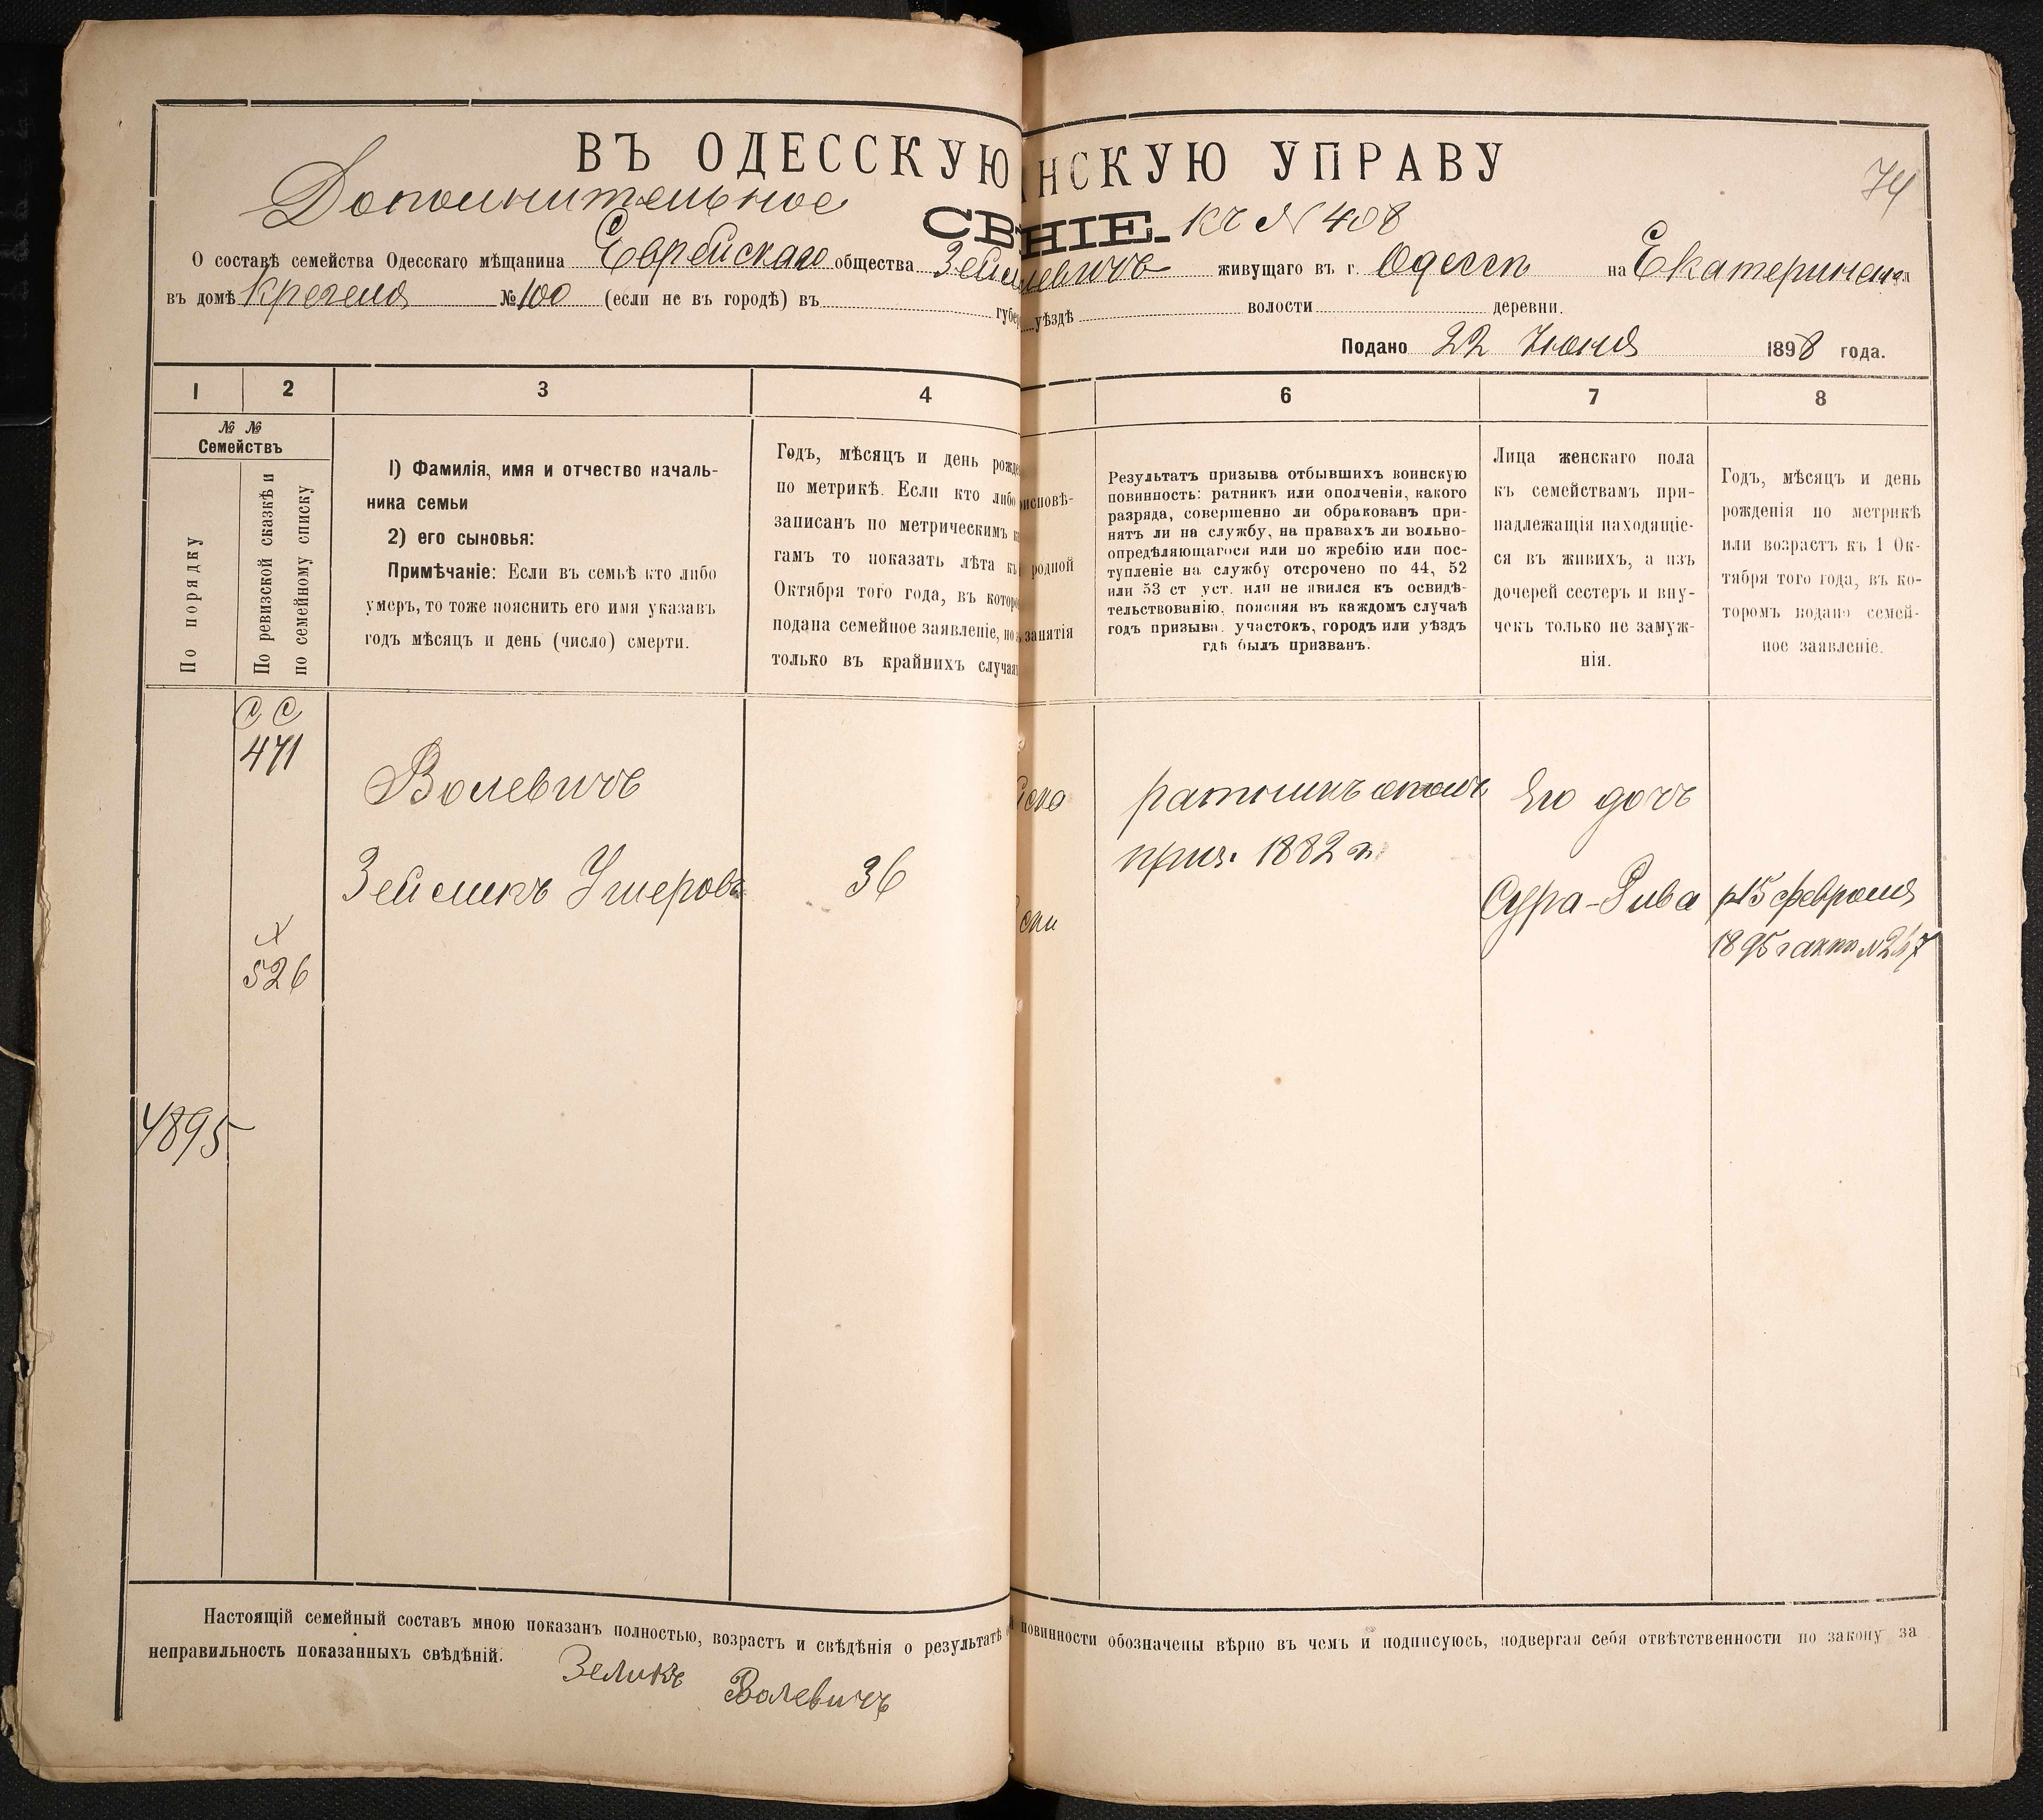 ВЪ ОДЕССКУЮ НСКУЮ УПРАВУ
74
Дополнительное
СВ НІЕ. къ № 408
О составѣ семейства Одесскаго мѣщанина Еврейскаго общества Зейм левичъ живущаго въ г. Одессѣ на Екатеринен ул
въ домѣ № 100 (если не въ городѣ) въ губе уѣздѣ волости деревни.
Подано 22 Июня 1898 года.
1 2 3 4 6 7 8
№ № Семействъ
По порядку
По ревизской сказкѣ и по семейному списку
1) Фамилія, имя и отчество началь-
ника семьи
2) его сыновья:
Примѣчаніе: Если въ семьѣ кто либо
умеръ, то тоже пояснить его имя указавъ
годъ мѣсяцъ и день (число) смерти.
Годъ, мѣсяцъ и день рожде
по метрикѣ. Если кто либо
записанъ по метрическимъ к
гамъ то показать лѣта къ
Октября того года, въ которо
подана семейное заявленіе, но
только въ крайнихъ случая
исповѣ-
родной
занятія
Результатъ призыва отбывшихъ воинскую
повинность: ратникъ или ополченія, какого
разряда, совершенно ли обракованъ при-
нятъ ли на службу, на правахъ ли вольно-
опредѣляющагося или по жребію или пос-
тупленіе на службу отсрочено по 44, 52
или 53 ст уст. или не явился къ освидѣ-
тельствованію, поясняя въ каждомъ случаѣ
годъ призыва. участокъ, городъ или уѣздъ
гдѣ былъ призванъ.
Лица женскаго пола
къ семействамъ при-
надлежащія находящіе-
ся въ живихъ, а изъ
дочерей сестеръ и вну-
чекъ только не замуж-
нія.
Годъ, мѣсяцъ и день
рожденія по метрикѣ
или возрастъ къ 1 Ок-
тября того года, въ ко-
торомъ подано семей-
ное заявленіе.
С С
471
Волевичъ
ратникъ ополч
Его дочь
приз. 1882 г.
Зейликъ Ушеровъ
36
Сура-Рива
р 15 февраля
1895 г актъ № 247
526
4895
Настоящій семейный составъ мною показанъ полностью, возрастъ и свѣдѣнія о результатѣ повинности обозначены вѣрно въ чемъ и подписуюсь, подвергая себя отвѣтственности по закону за
неправильность показанныхъ свѣдѣній.
Зеликъ Волевичъ